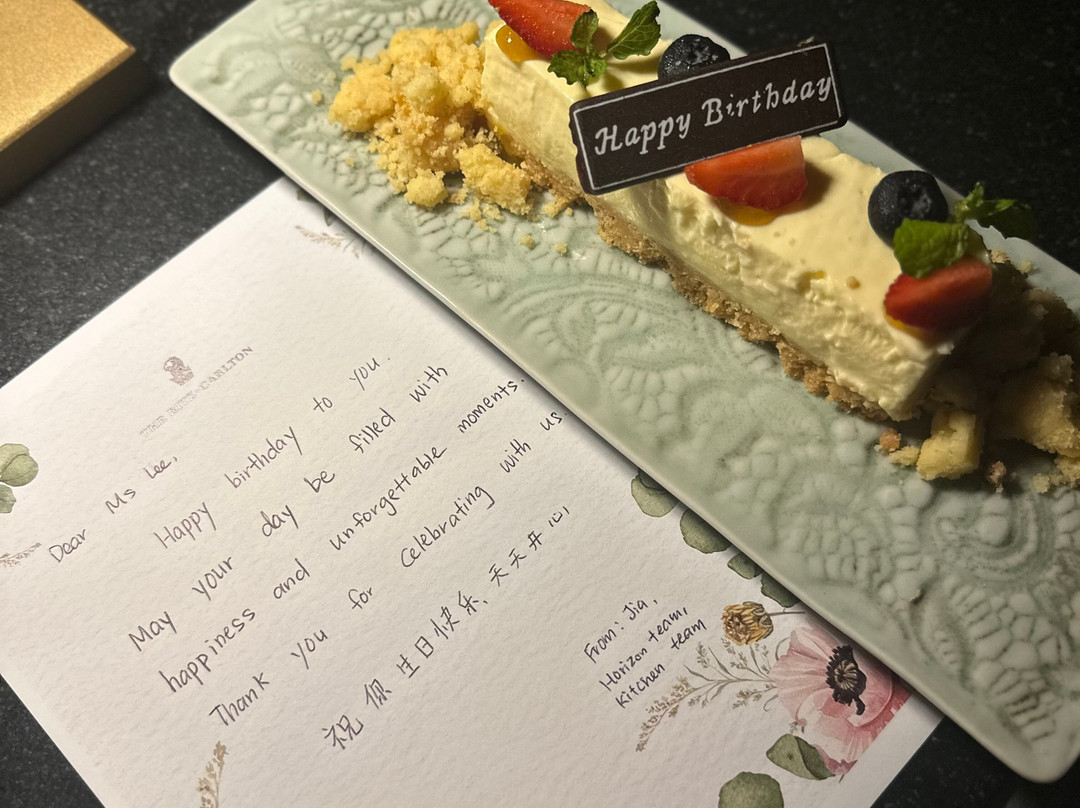 Happy Birthday
THE RITZ-CARLTON
Dear Ms Lee,
Happy birthday to you.
May your day be filled with
happiness and unforgettable moments.
Thank you for celebrating with us.
祝你生日快乐, 天天开心
From: Jia,
Horizon team,
Kitchen team